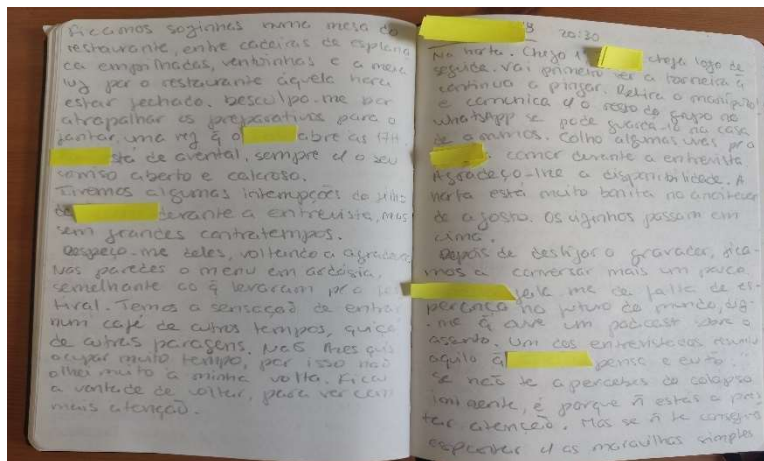 Ficamos sozinhas numa mesa do
restaurante, entre cadeiras de esplana
da empilhadas, ventoinhas e a meia
luz por o restaurante àquela hora
estar fechado. Desculpo-me por
atrapalhar os preparativos para o
jantar, uma vez q o abre às 17h.
está de avental, sempre c/ o seu
sorriso aberto e caloroso.
Tivemos algumas interrupções do
de durante a entrevista, mas
sem grandes contratempos.
Despeço-me deles, voltando a agradecer.
Nas paredes o menu em ardósia,
semelhante ao q levaram pro
tival. Temos a sensação de entrar
num café de outros tempos, quiçá
de outras paragens. Não lhes quis
ocupar muito tempo, por isso não
olhei muito à minha volta. Ficou
a vontade de voltar, para ver com
mais atenção.
20:30
Na horta. Chego e chega logo de
seguida. Vai primeiro ver a torneira q
continua a pingar. Retira o manípulo
e comunica c/ o resto do grupo no
WhatsApp se pode guardá-lo na casa
de arrumos. Colho algumas uvas pra
comer durante a entrevista
Agradeço-lhe a disponibilidade. A
horta está muito bonita no anoitecer
de agosto. Os aviões passam em
cima.
Depois de desligar o gravador, fica-
mos a conversar mais um pouco.
fala-me da falta de es-
perança no futuro do mundo, diz-
-me q ouve um podcast sobre o
assunto. Um dos entrevistados resumiu
aquilo q pensa e eu tb:
"se não te apercebes do colapso
iminente, é porque ñ estás a pres
tar atenção. Mas se ñ te consegues
espantar c/ as maravilhas simples